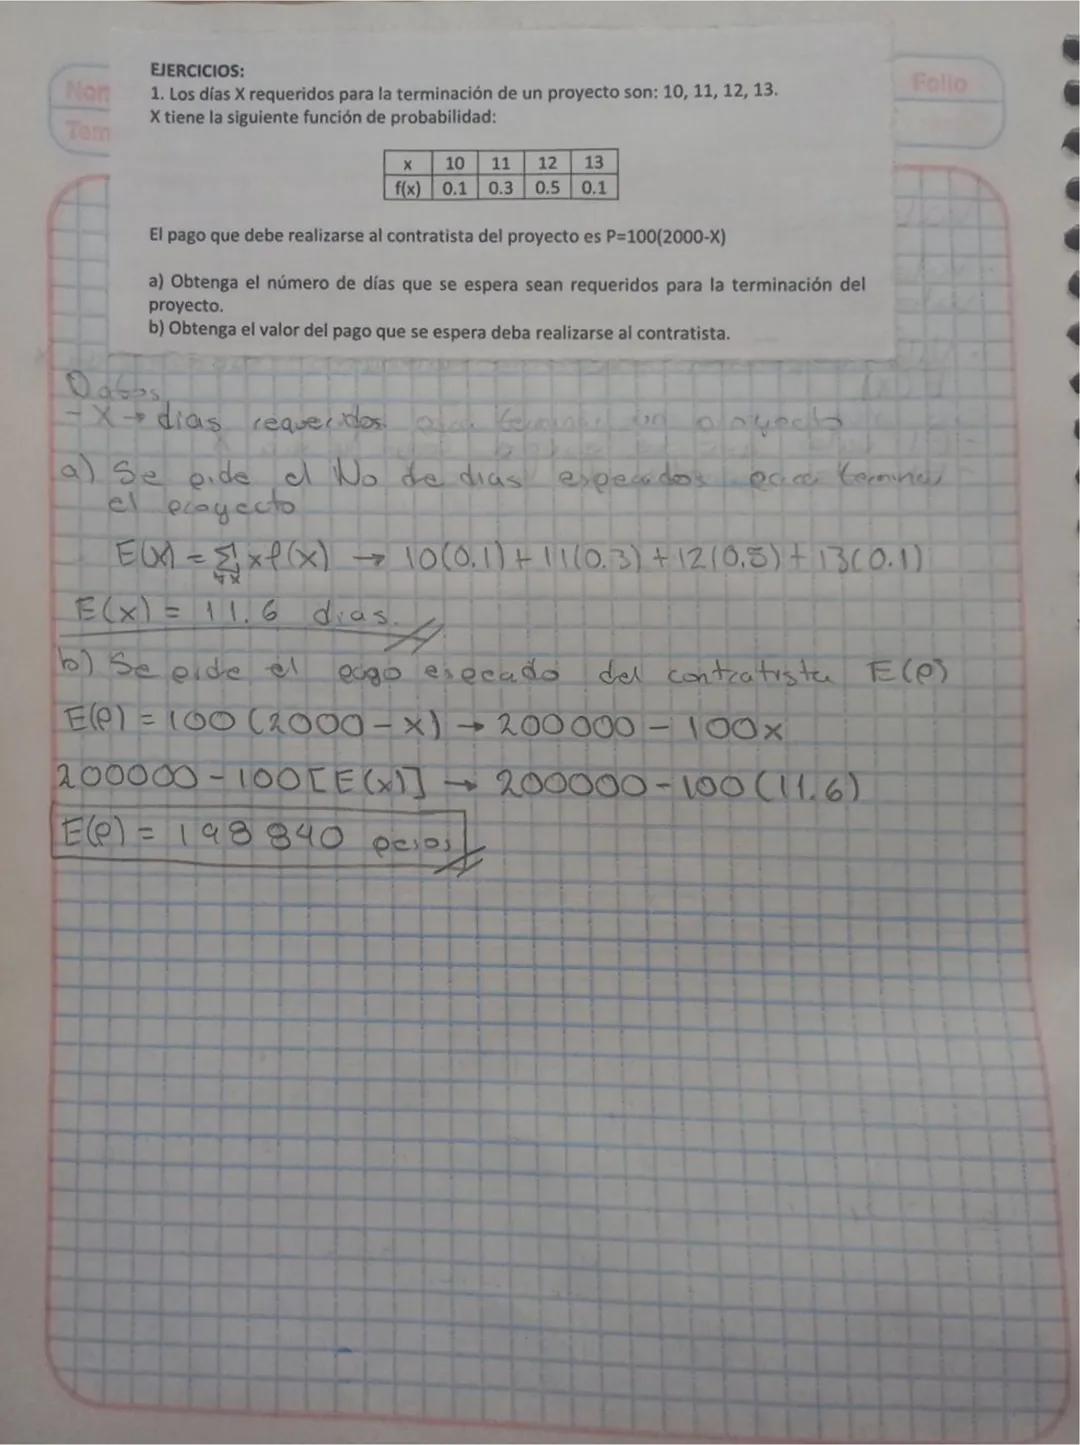 Nom
Tem
Folio
EJERCICIOS:
1. Los días X requeridos para la terminación de un proyecto son: 10, 11, 12, 13.
X tiene la siguiente función de probabilidad:
x 10 11 12 13
f(x) 0.1 0.3 0.5 0.1
El pago que debe realizarse al contratista del proyecto es P=100(2000-X)
a) Obtenga el número de días que se espera sean requeridos para la terminación del
proyecto.
b) Obtenga el valor del pago que se espera deba realizarse al contratista.
Datos
- X → dias requeridos para terminar un proyecto
a) Se pide el No de dias esperados para terminar
el proyecto
E(x) = Σ xf(x) → 10(0.1) + 11(0.3) + 12(0.5) + 13(0.1)
∀x
E(x) = 11.6 dias.
b) Se pide el pago esperado del contratista E(p)
E(p) = 100 (2000 - x) → 200000 - 100x
200000 - 100 [E(x)] → 200000 - 100 (11.6)
E(p) = 198 840 pesos